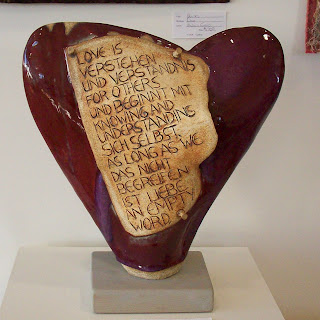 LOVE IS
VERSTEHEN
UND VERSTÄNDNIS
FOR OTHERS
UND BEGINNT MIT
KNOWING AND
UNDERSTANDING
SICH SELBST.
AS LONG AS WE
DAS NICHT
BEGREIFEN
IST LIEBE
AN EMPTY
WORD